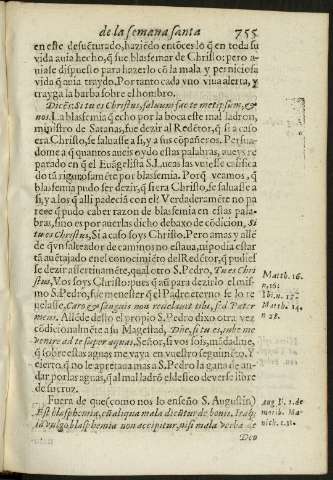 de la semana santa 755
en este desuẽturado, haziẽdo entõces lo q̃ en toda su
vida auia hecho, q̃ fue blasfemar de Christo: pero a-
uiase dispuesto para hazerlo cõ la mala y perniciosa
vida q̃ auia traydo. Por tanto cada vno viua alerta, y
trayga la barba sobre el hombro.
Dicẽ: Si tu es Christus, saluum fac te metipsum, &
nos. La blasfemia q̃ echo por la boca este mal ladron,
ministro de Satanas, fue dezir al Redẽtor, q̃ si a caso
era Christo, se saluasse a si, y a sus cõpañeros. Persua-
dome a q̃ quantos aueis oydo estas palabras, aueys re
parado en q̃ el Euãgelista S. Lucas las vuiesse califica
do tã rigurosamẽte por blasfemia. Porq̃ veamos, q̃
blasfemia pudo ser dezir, q̃ si era Christo, se saluasse a
si, y a los q̃ alli padeciã con el? Verdaderamẽte no pa
rece q̃ pudo caber razon de blasfemia en estas pala-
bras, sino es por auerlas dicho debaxo de cõdicion, Si
tu es Christus, Si a caso soys Christo. Pero amas y allẽ
de q̃ vn salteador de caminos no estaua, ni podia estar
tã auẽtajado en el conocimiẽto del Redẽtor, q̃ pudies
se dezir assertinamẽte, qual otro S. Pedro, Tu es Chri
stus, Vos soys Christo: pues q̃ aũ para dezirlo el mis-
mo S. Pedro, fue menester q̃ el Padre eterno se lo re
uelasse, Caro & sanguis non reuelauit tibi, sed Pater
meus. Allẽde desto el propio S. Pedro dixo otra vez
cõdicionalmẽte a su Magestad, Dñe, si tu es, iube me
venire ad te super aquas, Señor, si vos sois, mãdadme,
q̃ sobre estas aguas me vaya en vuestro seguimẽto. Y
cierto, q̃ no le apretaua mas a S. Pedro la gana de an-
dar por las aguas, q̃ al mal ladrõ el desseo de verse libre
de su cruz.
Fuera de que (como nos lo enseñò S. Augustin)
Est blasphemia, cũ aliqua mala dicũtur de bonis. Itaq;
iã vulgo blasphemia non accipitur, nisi mala verba de
Deo
Matth. 16.
n. 16:
Ibi. n. 17.
Matth. 14.
n 28.
Aug li. 2. de
morib. Ma-
nich. c. 11.